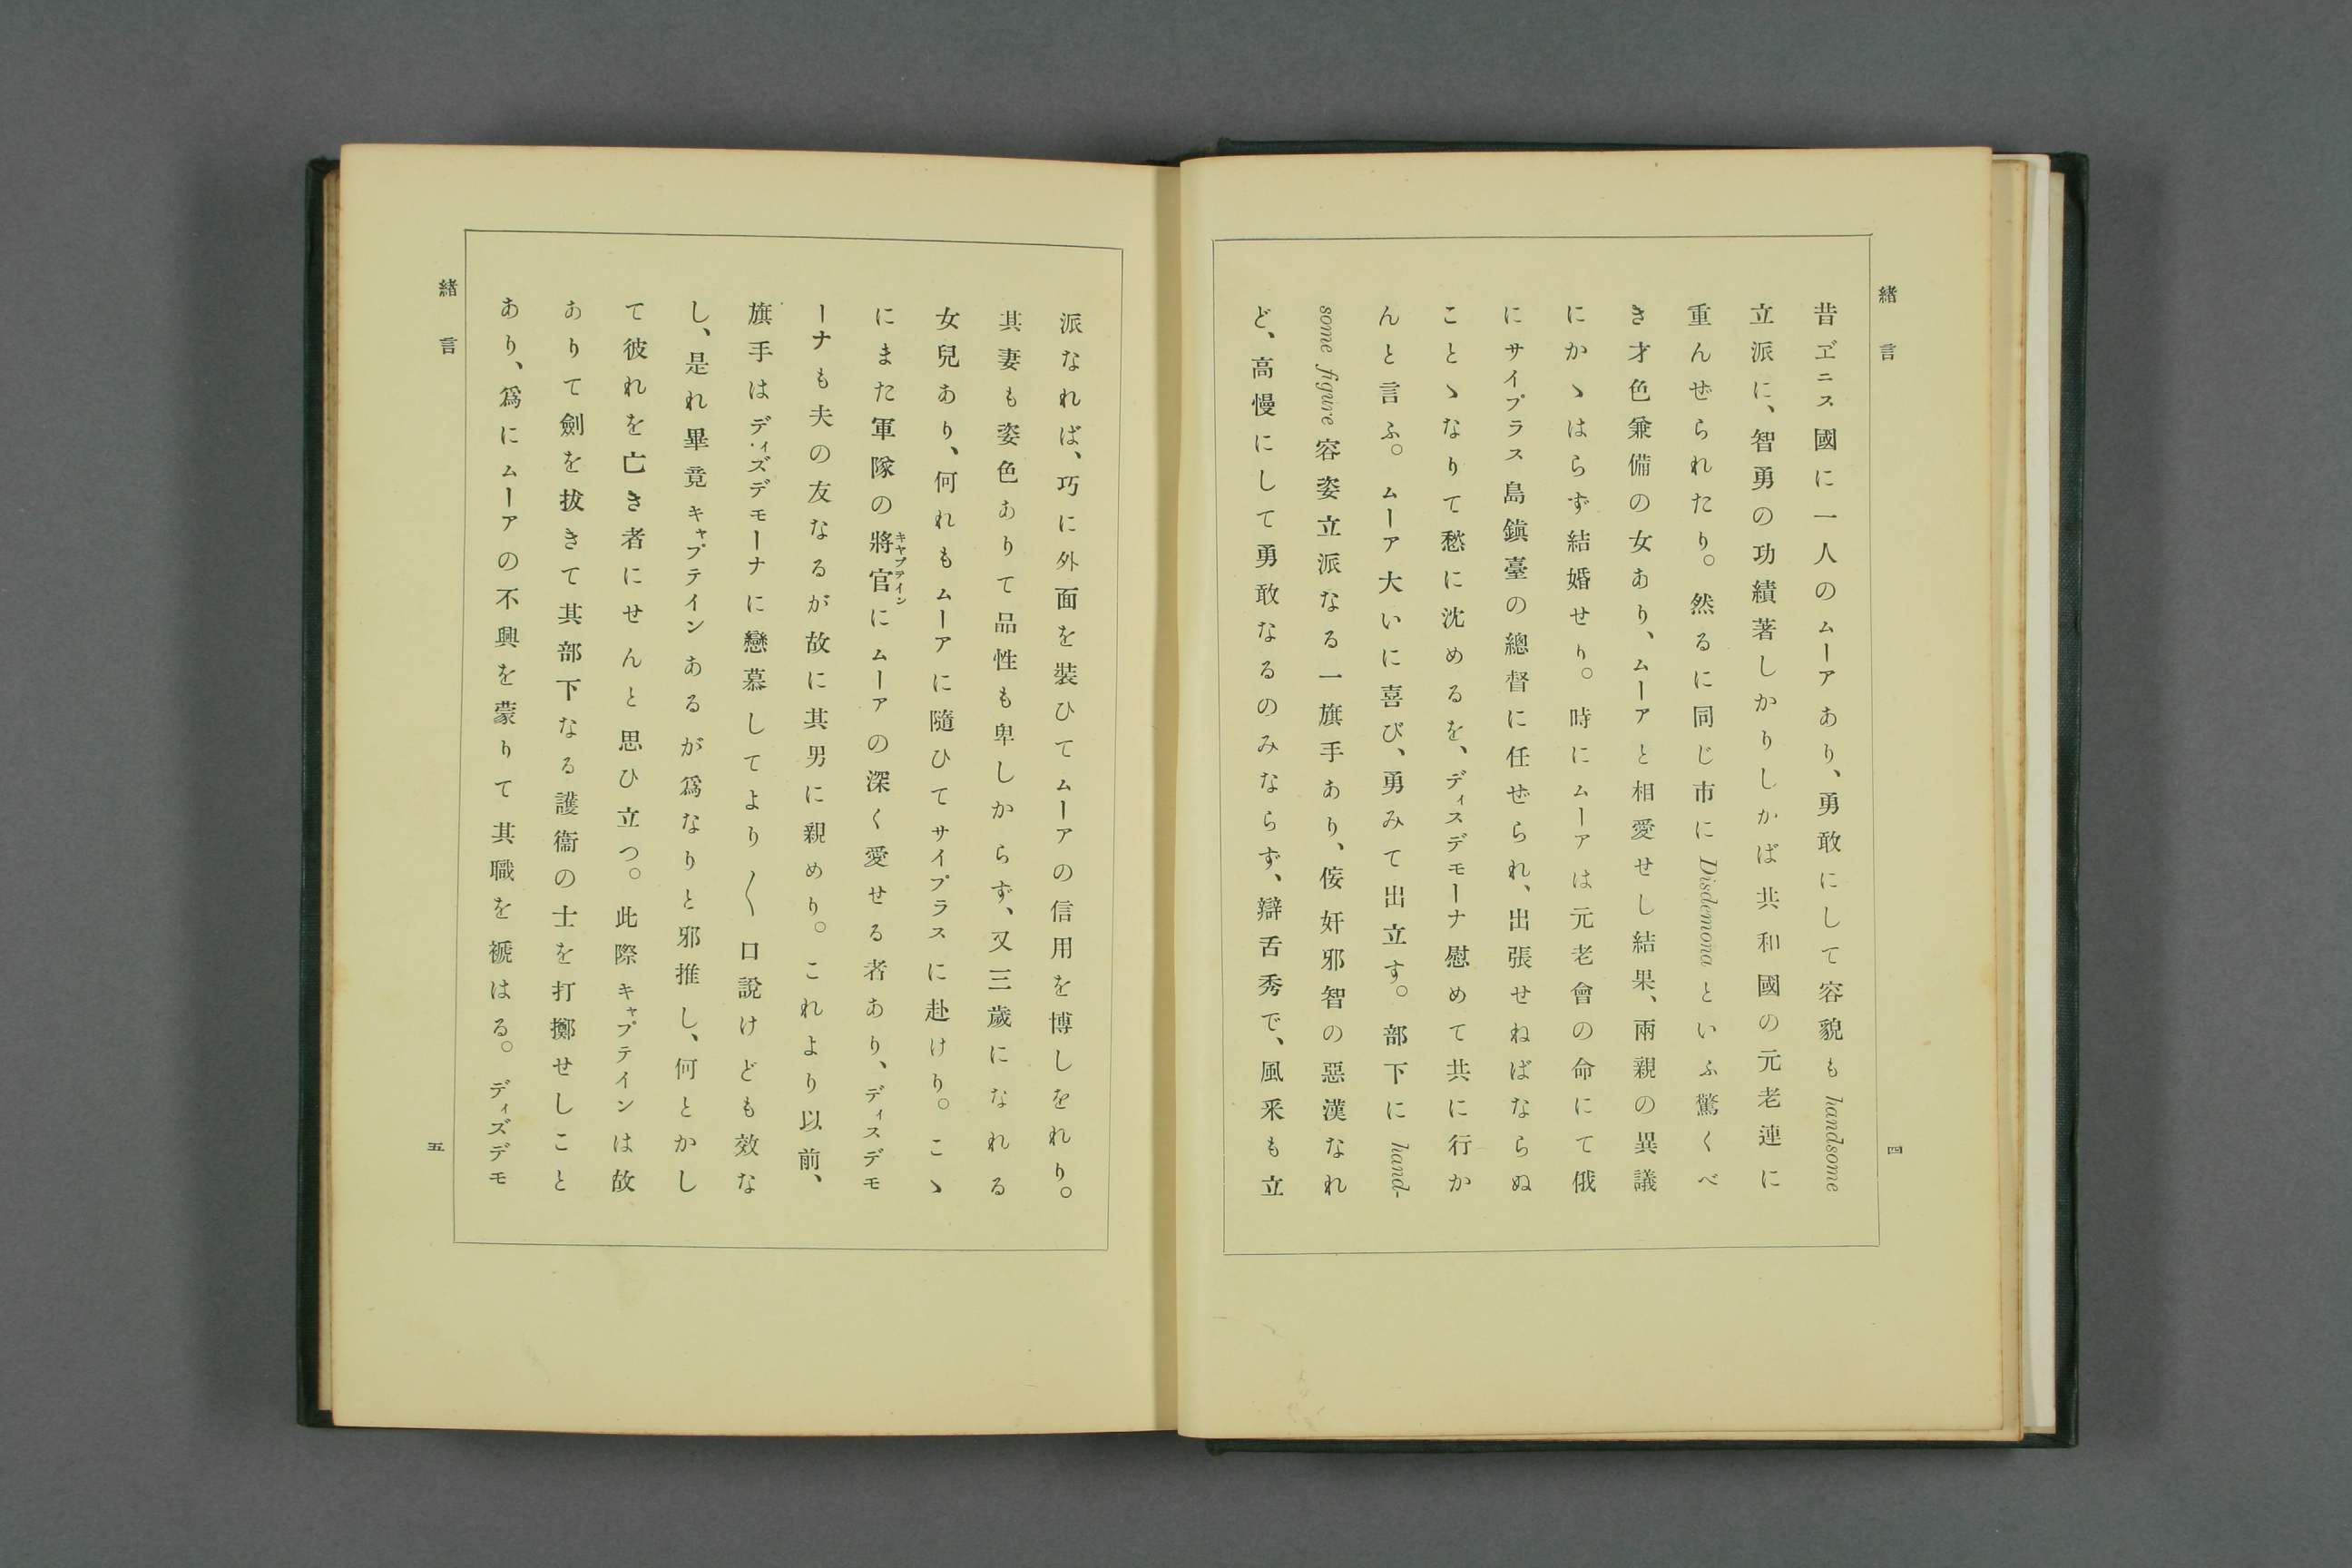 緒言
四
昔ヹニス國に一人のムーアあり、勇敢にして容貌も handsome
立派に、智勇の功績著しかりしかば共和國の元老連に
重んぜられたり。然るに同じ市に Disdemona といふ驚くべ
き才色兼備の女あり、ムーアと相愛せし結果、兩親の異議
にかゝはらず結婚せり。時にムーアは元老會の命にて俄
にサイプラス島鎭臺の總督に任ぜられ、出張せねばならぬ
ことゝなりて愁に沈めるを、ディスデモーナ慰めて共に行か
んと言ふ。ムーア大いに喜び、勇みて出立す。部下に hand-
some figure 容姿立派なる一旗手あり、侫奸邪智の惡漢なれ
ど、高慢にして勇敢なるのみならず、辯舌秀で、風采も立
派なれば、巧に外面を裝ひてムーアの信用を博しをれり。
其妻も姿色ありて品性も卑しからず、又三歲になれる
女兒あり、何れもムーアに隨ひてサイプラスに赴けり。こゝ
にまた軍隊の將官にムーアの深く愛せる者あり、ディスデモ
キャプテイン
ーナも夫の友なるが故に其男に親めり。これより以前、
旗手はディズデモーナに戀慕してより〱口說けども效な
し、是れ畢竟キャプテインあるが爲なりと邪推し、何とかし
て彼れを亡き者にせんと思ひ立つ。此際キャプテインは故
ありて劍を拔きて其部下なる護衞の士を打擲せしこと
あり、爲にムーアの不興を蒙りて其職を褫はる。ディズデモ
緒言
五